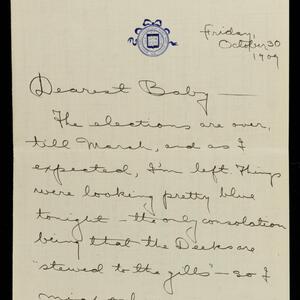 Friday,
October 30
1909
Dearest Baby —
The elections are over,
till March, and as I
expected, I'm left. Things
were looking pretty blue
tonight — the only consolation
being that the Deeks are
"stewed to the gills" — so I